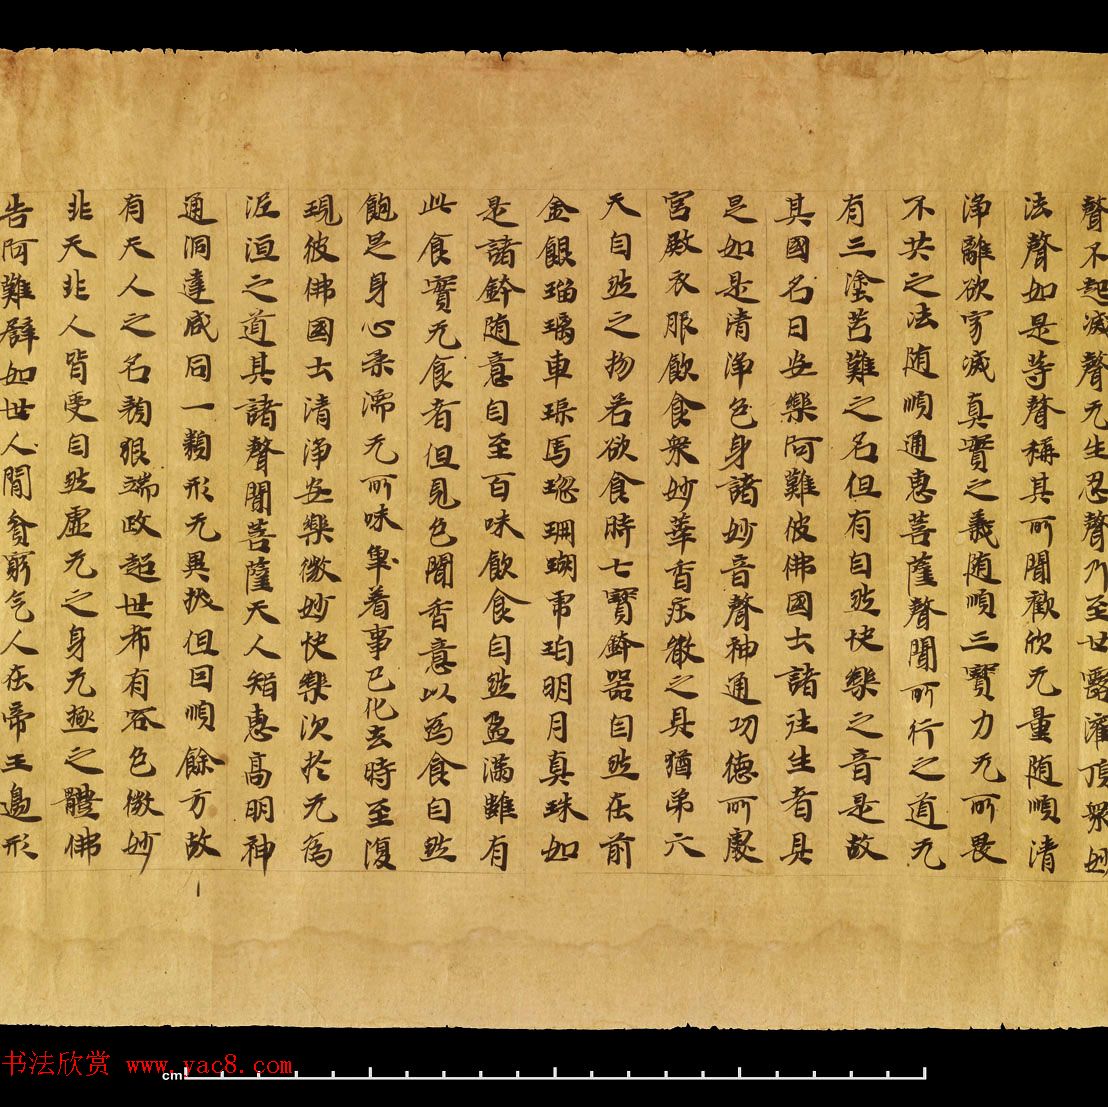 聲不起滅聲无生忍聲乃至甘露灌頂衆妙
法聲如是等聲稱其所聞歡欣无量随順清
淨離欲寂滅真實之義随順三寶力无所畏
不共之法随順通惠菩薩聲聞所行之道无
有三塗苦難之名但有自然快樂之音是故
其國名曰安樂阿難彼佛國土諸往生者具
足如是清淨色身諸妙音聲神通功德所處
宮殿衣服飲食衆妙華香莊嚴之具猶第六
天自然之物若欲食時七寶鉢器自然在前
金銀瑠璃車璖馬瑙珊瑚虎珀明月真珠如
是諸鉢随意自至百味飲食自然盈滿雖有
此食實无食者但見色聞香意以為食自然
飽足身心柔濡无所味着事已化去時至復
現彼佛國土清淨安樂微妙快樂次於无為
泥洹之道其諸聲聞菩薩天人智惠高明神
通洞達咸同一類形无異状但因順餘方故
有天人之名顏貌端政超世希有容色微妙
非天非人皆受自然虛无之身无極之體佛
告阿難譬如世人間貧窮乞人在帝王邊形
书法欣赏 www.yac8.com
cm